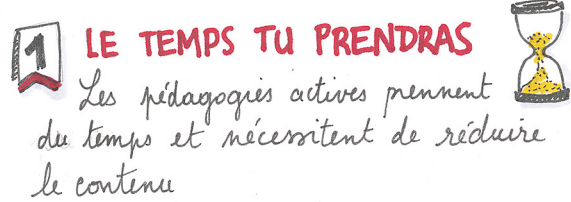 1 LE TEMPS TU PRENDRAS
Les pédagogies actives prennent
du temps et nécessitent de réduire
le contenu